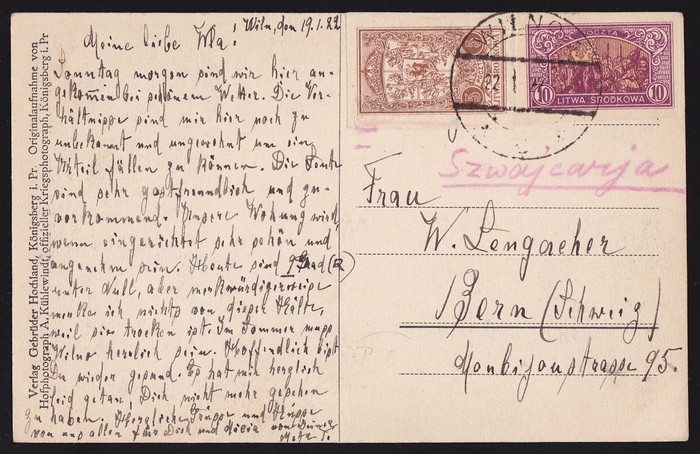 Verlag Gebrüder Hochland, Königsberg i. Pr. Originalaufnahme von
Hofphotograph A. Kühlewindt, offizieller Kriegsphotograph, Königsberg i. Pr.
Wilno, den 19.1.22
Meine liebe
Sonntag morgen sind wir hier an-
gekommen bei schönem Wetter. Die Ver-
hältnisse sind mir hier noch zu
unbekannt und ungewohnt um ein
Urteil fällen zu können. Die Leute
sind sehr gastfreundlich und zu-
vorkommend. Unsere Wohnung wird,
wenn eingerichtet sehr schön und
angenehm sein. Heute sind 9 Grad (R)
unter Null, aber merkwürdigerweise
merke ich nichts von dieser Kälte,
weil sie trocken ist. Im Sommer muss
Wilno herrlich sein. Hoffentlich bist
Du wieder gesund. Es hat mir herzlich
leid getan, Dich nicht mehr gesehen
zu haben. Herzliche Grüsse und Küsse
von uns allen für Dich und von Deiner
WILNO
22 1
POCZTA
10 LITWA ŚRODKOWA 10
Szwajcarja
Frau
W. Lengacher
Bern (Schweiz)
Monbijoustrasse 95.